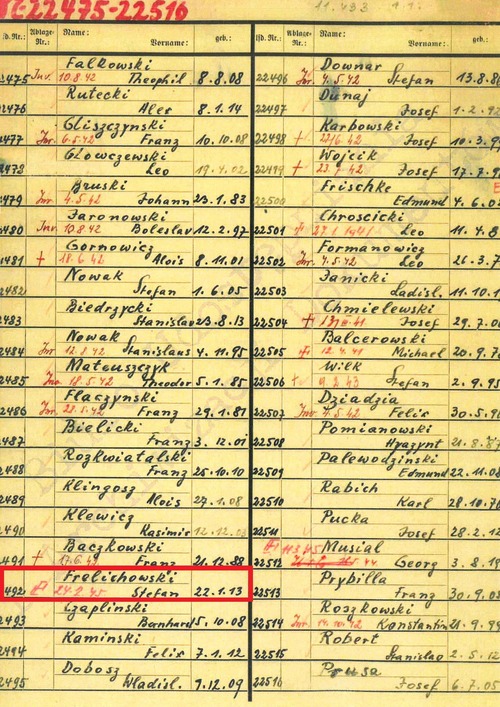 22475-22516
lfd. Nr.: Ablage-Nr.: Name: Vorname: geb.:
Falkowski
22475 Inv. 10.8.42 Theophil 8.8.08
Rutecki
22476 Alex 8.1.14
Gliszczynski
22477 Inv. 6.5.42 Franz 10.10.08
Glowczewski
22478 Leo 19.4.02
Bruski
22479 Inv. 4.5.42 Johann 23.1.83
Jaronowski
22480 Inv. 10.8.42 Boleslav 12.2.97
Gornowicz
22481 + 18.6.42 Alois 8.11.01
Nowak
22482 Stefan 1.6.05
Biedrzycki
22483 Stanislav 23.8.13
Nowak
22484 Inv. 12.8.42 Stanislaus 4.11.95
Mateuszczyk
22485 Inv. 18.5.42 Theodor 5.1.85
Flaczynski
22486 Inv. 28.5.42 Franz 29.1.81
Bielicki
22487 Franz 3.12.01
Rozkwiatalski
22488 Franz 25.10.10
Klingosz
22489 Alois 27.1.08
Klewicz
22490 Kasimir 12.12.03
Baczkowski
22491 + Franz 21.12.88
Frelichowski
22492 Stefan 22.1.13
Czaplinski
22493 Bernhard 5.10.08
Kaminski
22494 Felix 7.1.12
Dobosz
22495 Wladisl. 9.12.09
lfd. Nr.: Ablage-Nr.: Name: Vorname: geb.:
Downar
22496 Inv. 4.5.42 Stefan 13.8.8
Dunaj
22497 Josef 1.2.9
Karbowski
22498 + Josef 10.3.9
Wojcik
22499 + Josef 17.7.9
Frischke
22500 Edmund 4.6.0
Chroscicki
22501 Leo 11.4.8
Formanowicz
22502 Inv. 4.5.42 Leo 26.3.7
Janicki
22503 Ladisl. 11.10.1
Chmielewski
22504 Josef 29.7.0
Balcerowski
22505 12.4.41 Michael 20.9.7
Wilk
22506 Stefan 2.9.9
Dziadzia
22507 Inv. 4.5.42 Felix 30.5.9
Pomianowski
22508 Hyazynt 21.8.8
Palewodzinski
22509 Edmund 22.11.0
Rabich
22510 Karl 28.10.7
Pucka
22511 Josef 28.2.1
Musial
22512 Georg 3.8.1
Prybilla
22513 Franz 30.9.0
Roszkowski
22514 Inv. 14.10.42 Konstantin 21.9.9
Robert
22515 Stanislao 2.5.1
Prusa
22516 Josef 7.5.0